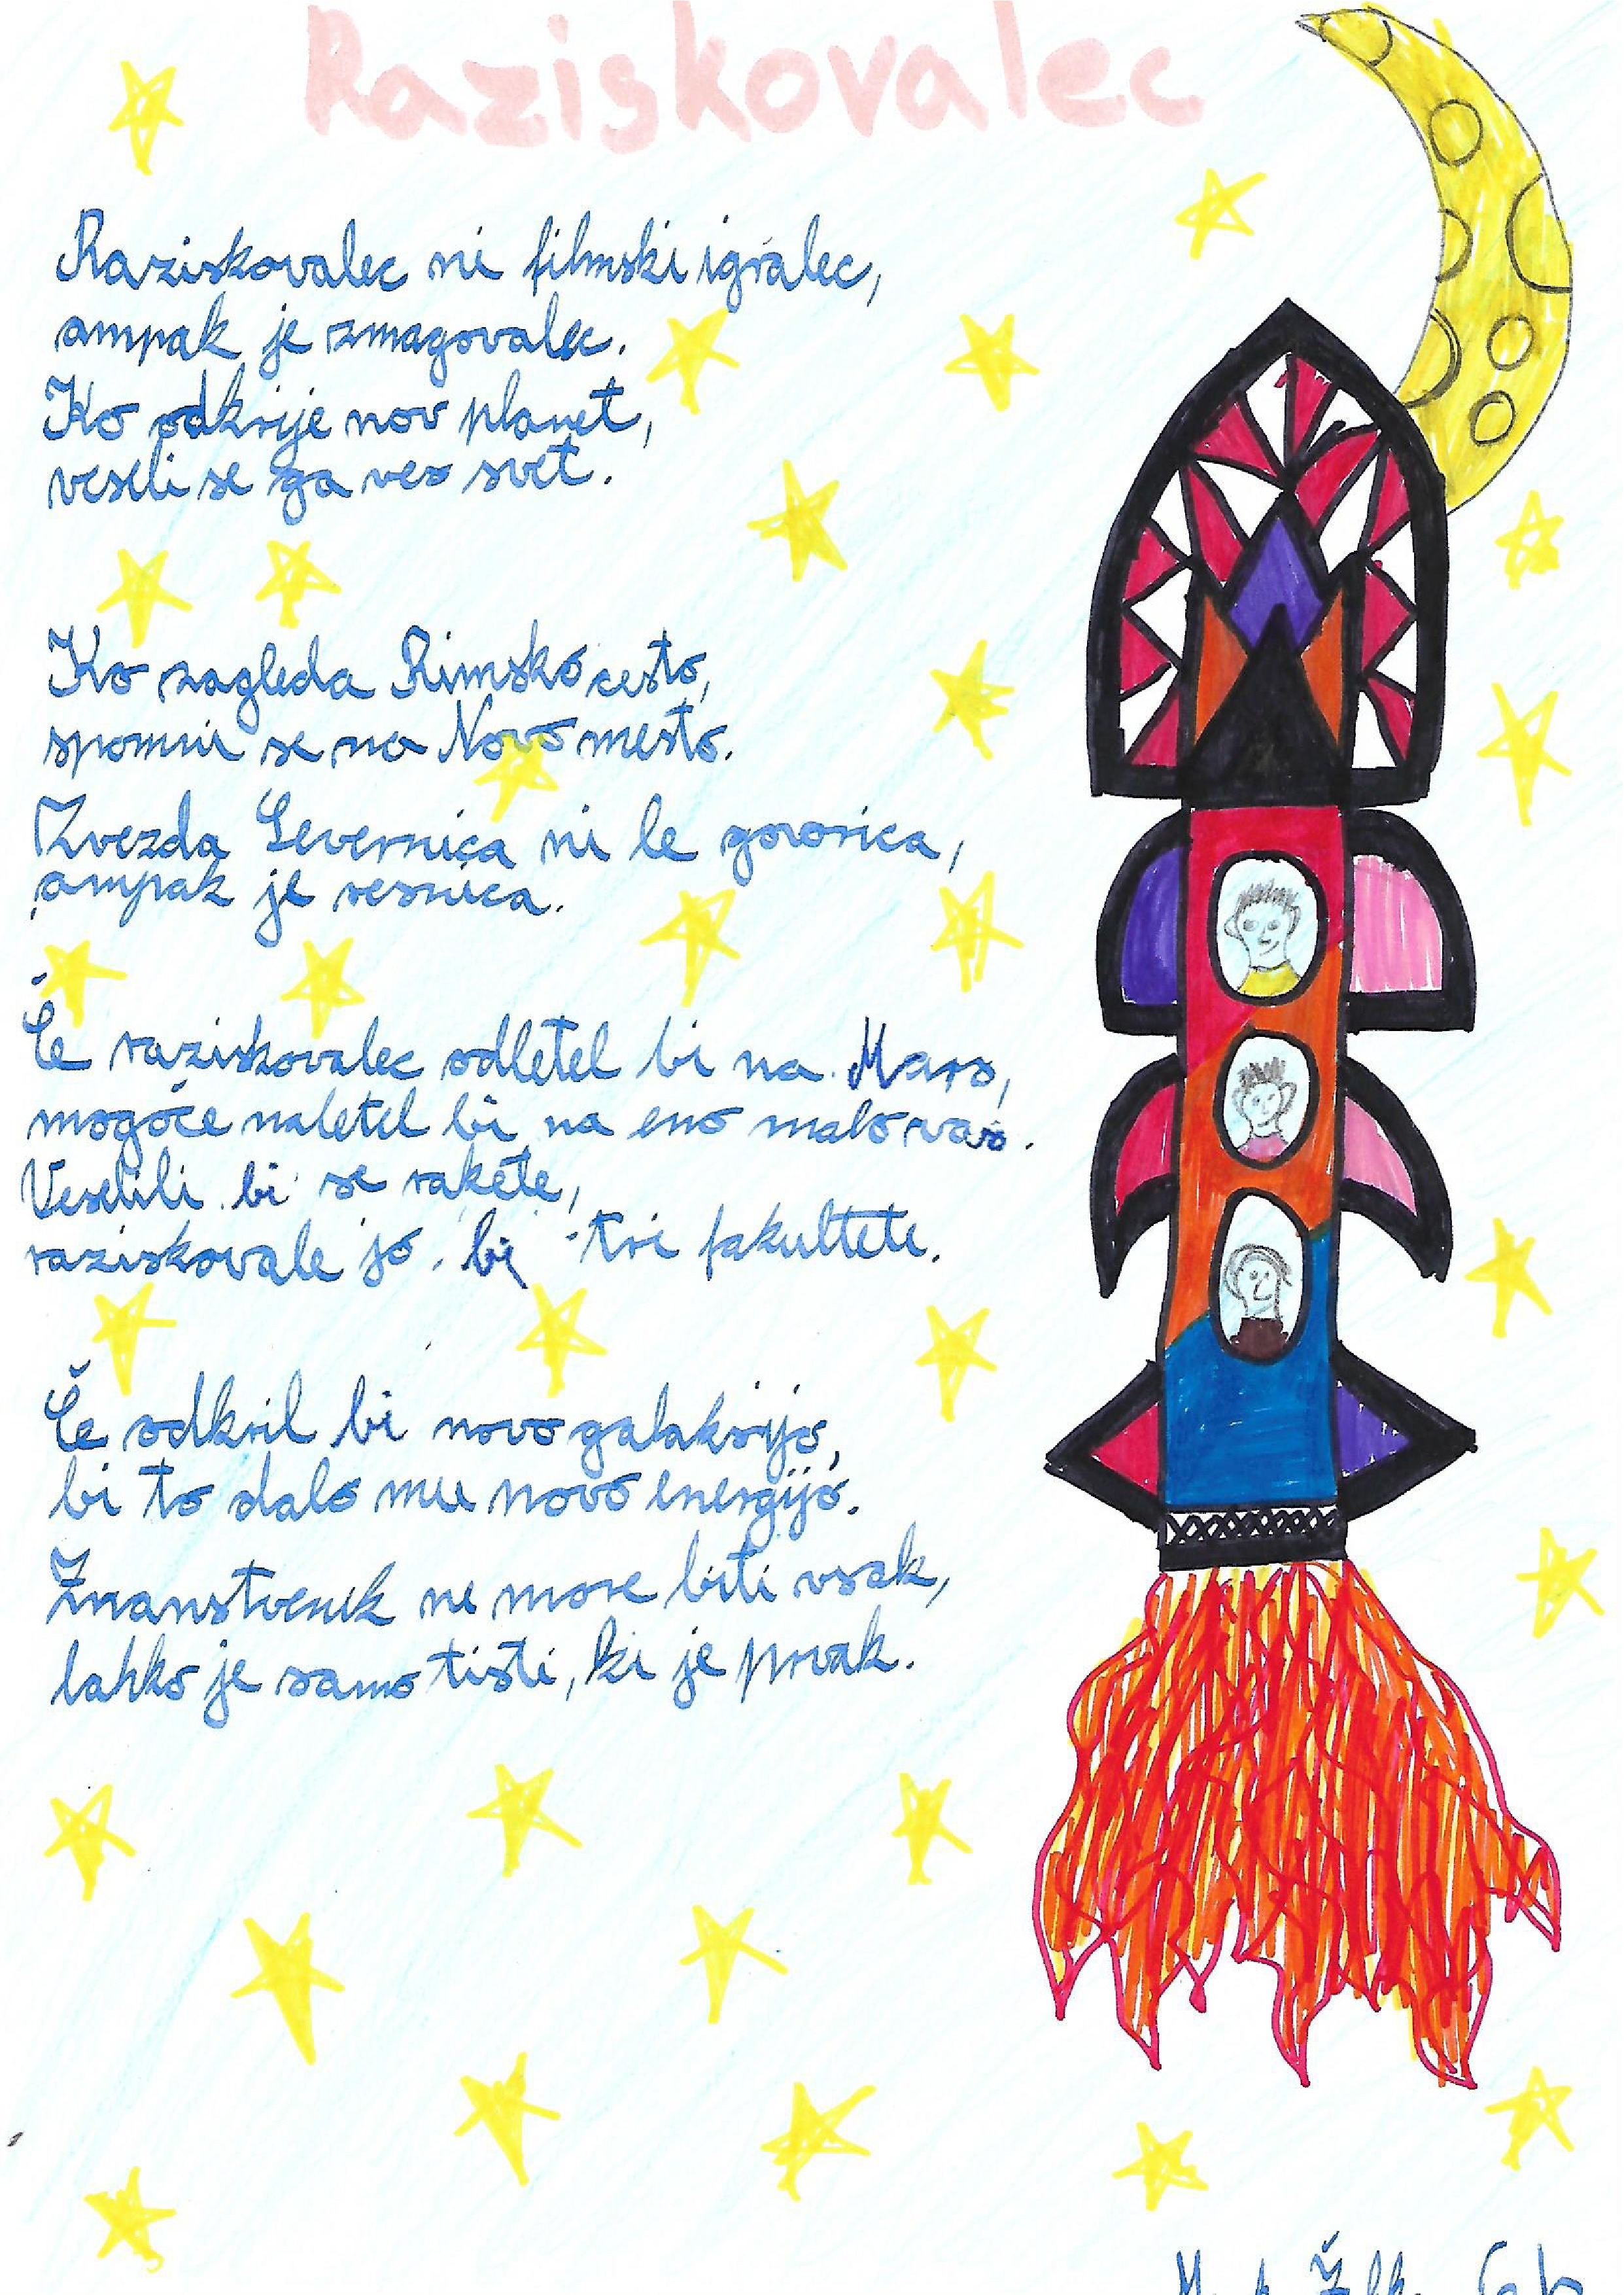 Raziskovalec
Raziskovalec ni filmski igralec,
ampak je zmagovalec.
Ko odkrije nov planet,
veseli se ga ves svet.
Ko zagleda Rimsko cesto,
spomni se na Novo mesto.
Zvezda Severnica ni le govorica,
ampak je resnica.
Če raziskovalec odletel bi na Mars,
mogoče naletel bi na eno malo vas.
Veselili bi se rakete,
raziskovale jo bi tri fakultete.
Če odkril bi novo galaksijo,
bi to dalo mu novo energijo.
Znanstvenik ne more biti vsak,
lahko je samo tisti, ki je prvak.